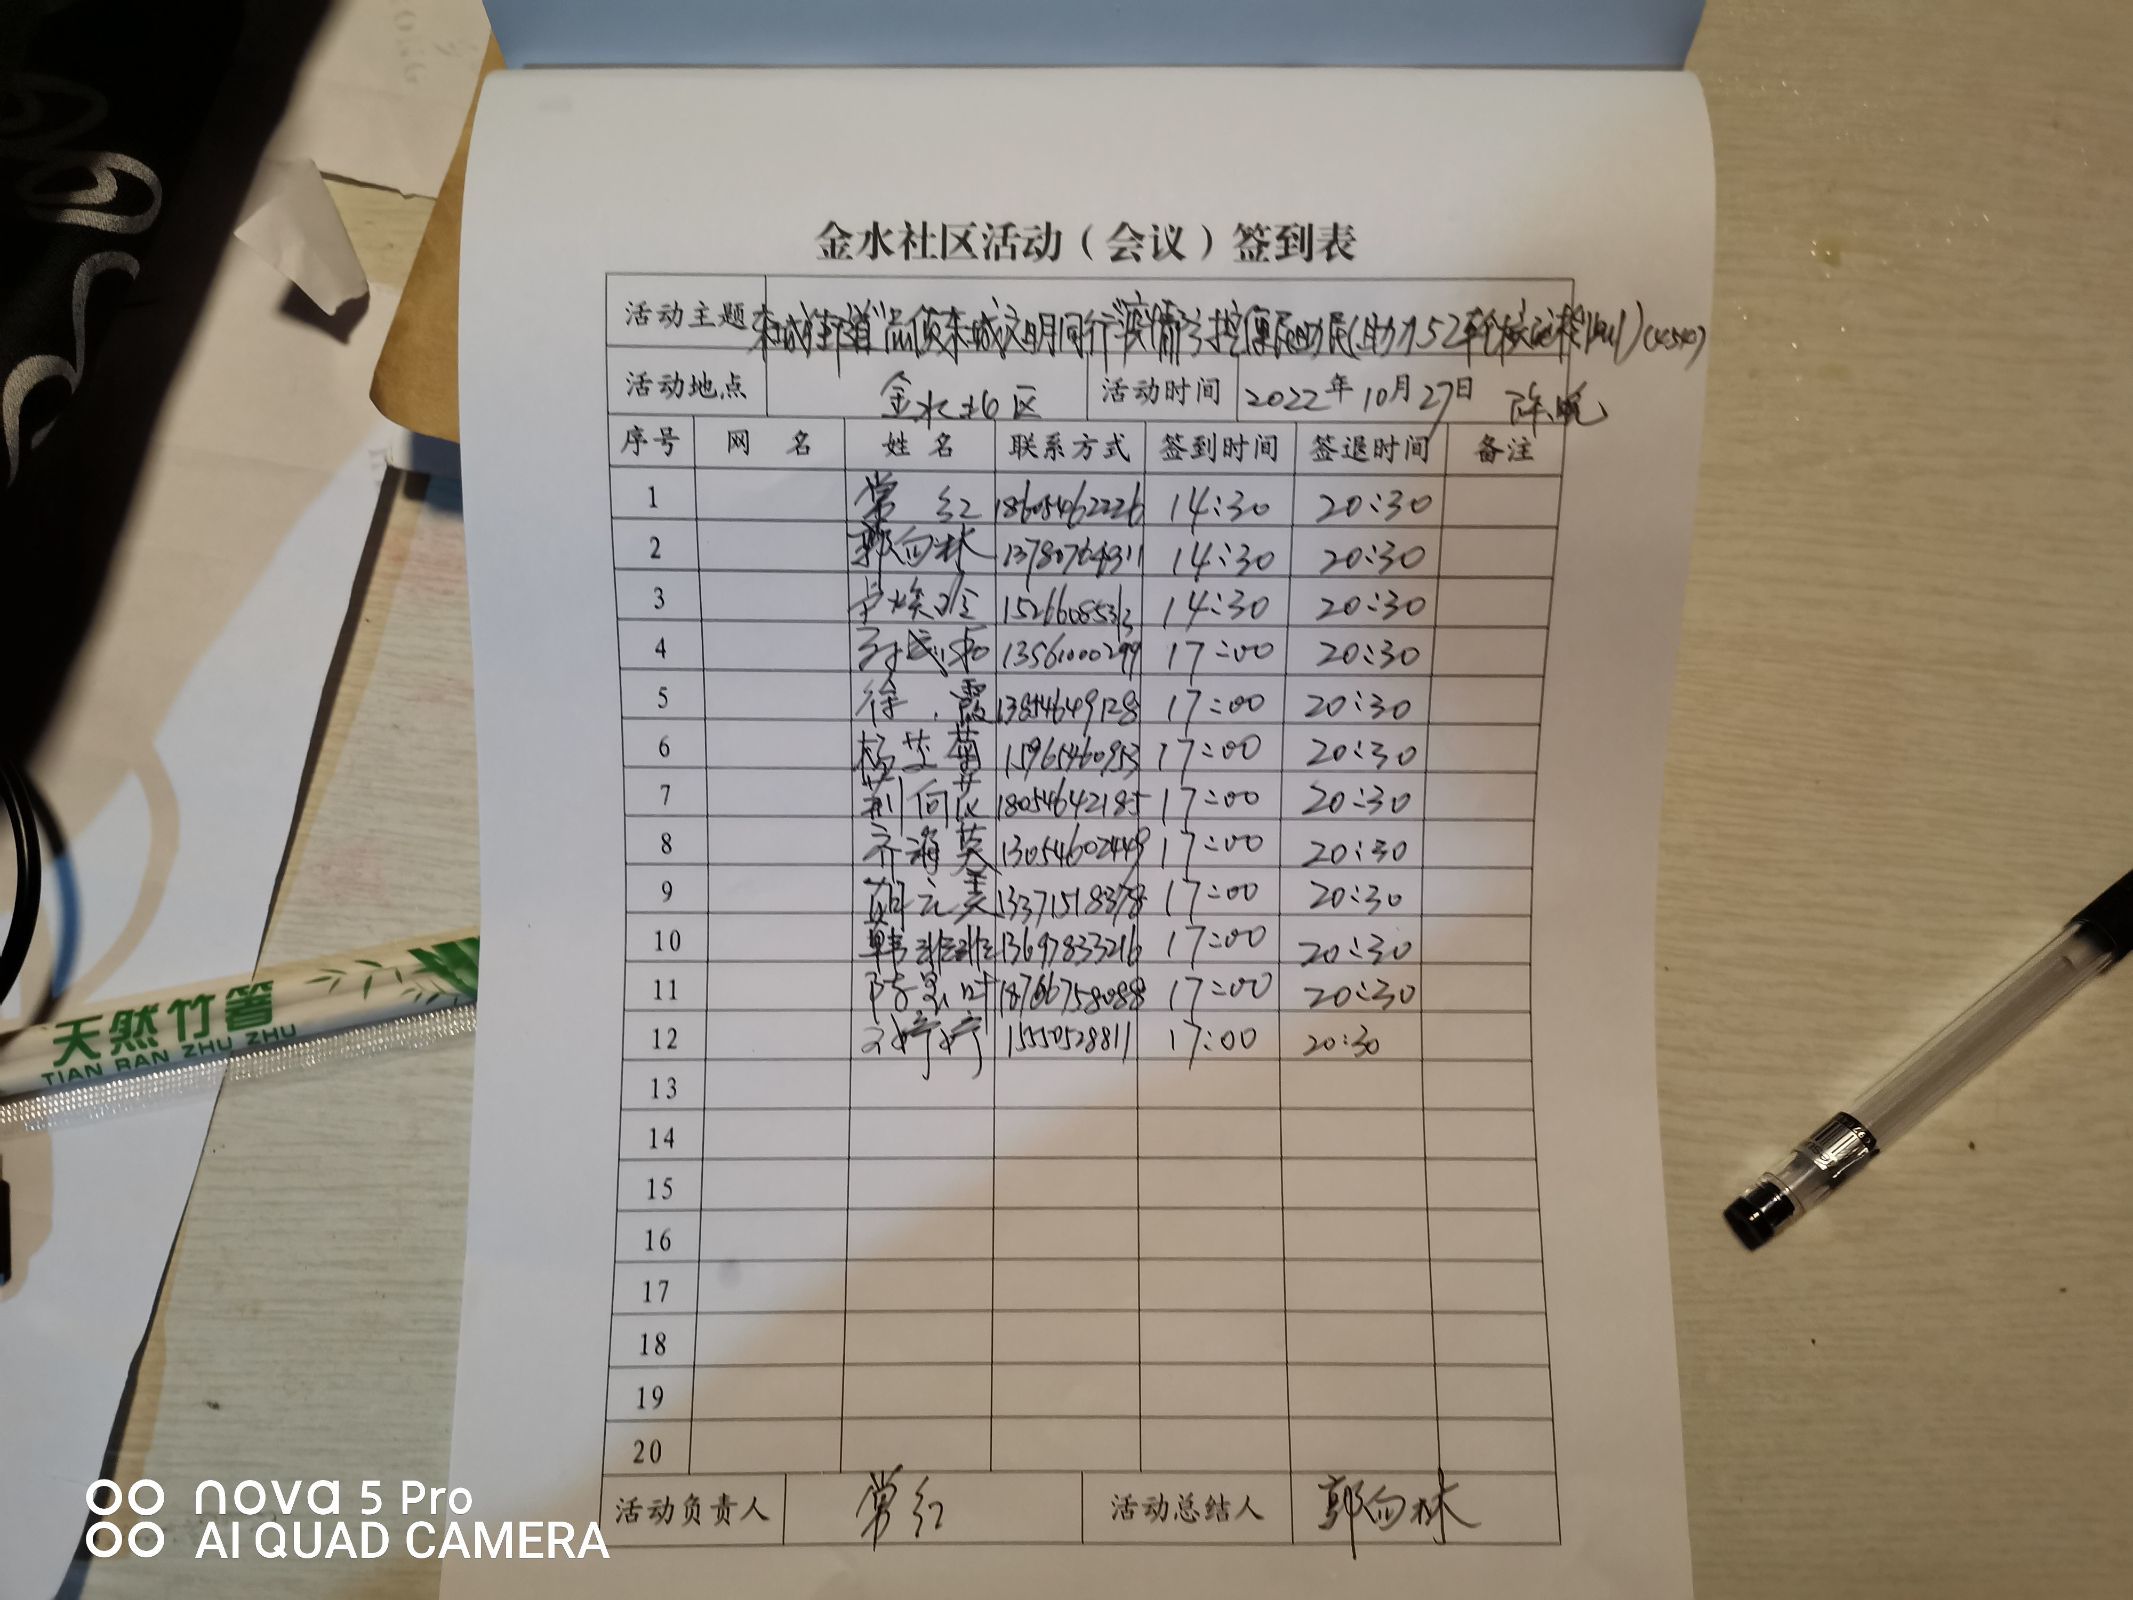 金水社区活动（会议）签到表
活动主题
活动地点 金水社区 活动时间 2022年10月27日
序号 网 名 姓 名 联系方式 签到时间 签退时间 备注
1 常 红 18605462226 14:30 20:30
2 郭向林 13780764311 14:30 20:30
3 15266085313 14:30 20:30
4 13561000299 17:00 20:30
5 徐 霞 13854649128 17:00 20:30
6 杨芝菊 15965460953 17:00 20:30
7 18054642185 17:00 20:30
8 13054602449 17:00 20:30
9 13371518378 17:00 20:30
10 韩非非 13697833216 17:00 20:30
11 18766758088 17:00 20:30
12 刘婷婷 15550528811 17:00 20:30
13
14
15
16
17
18
19
20
活动负责人 常红 活动总结人 郭向林
天然竹箸
TIAN RAN ZHU ZHU
nova 5 Pro
AI QUAD CAMERA